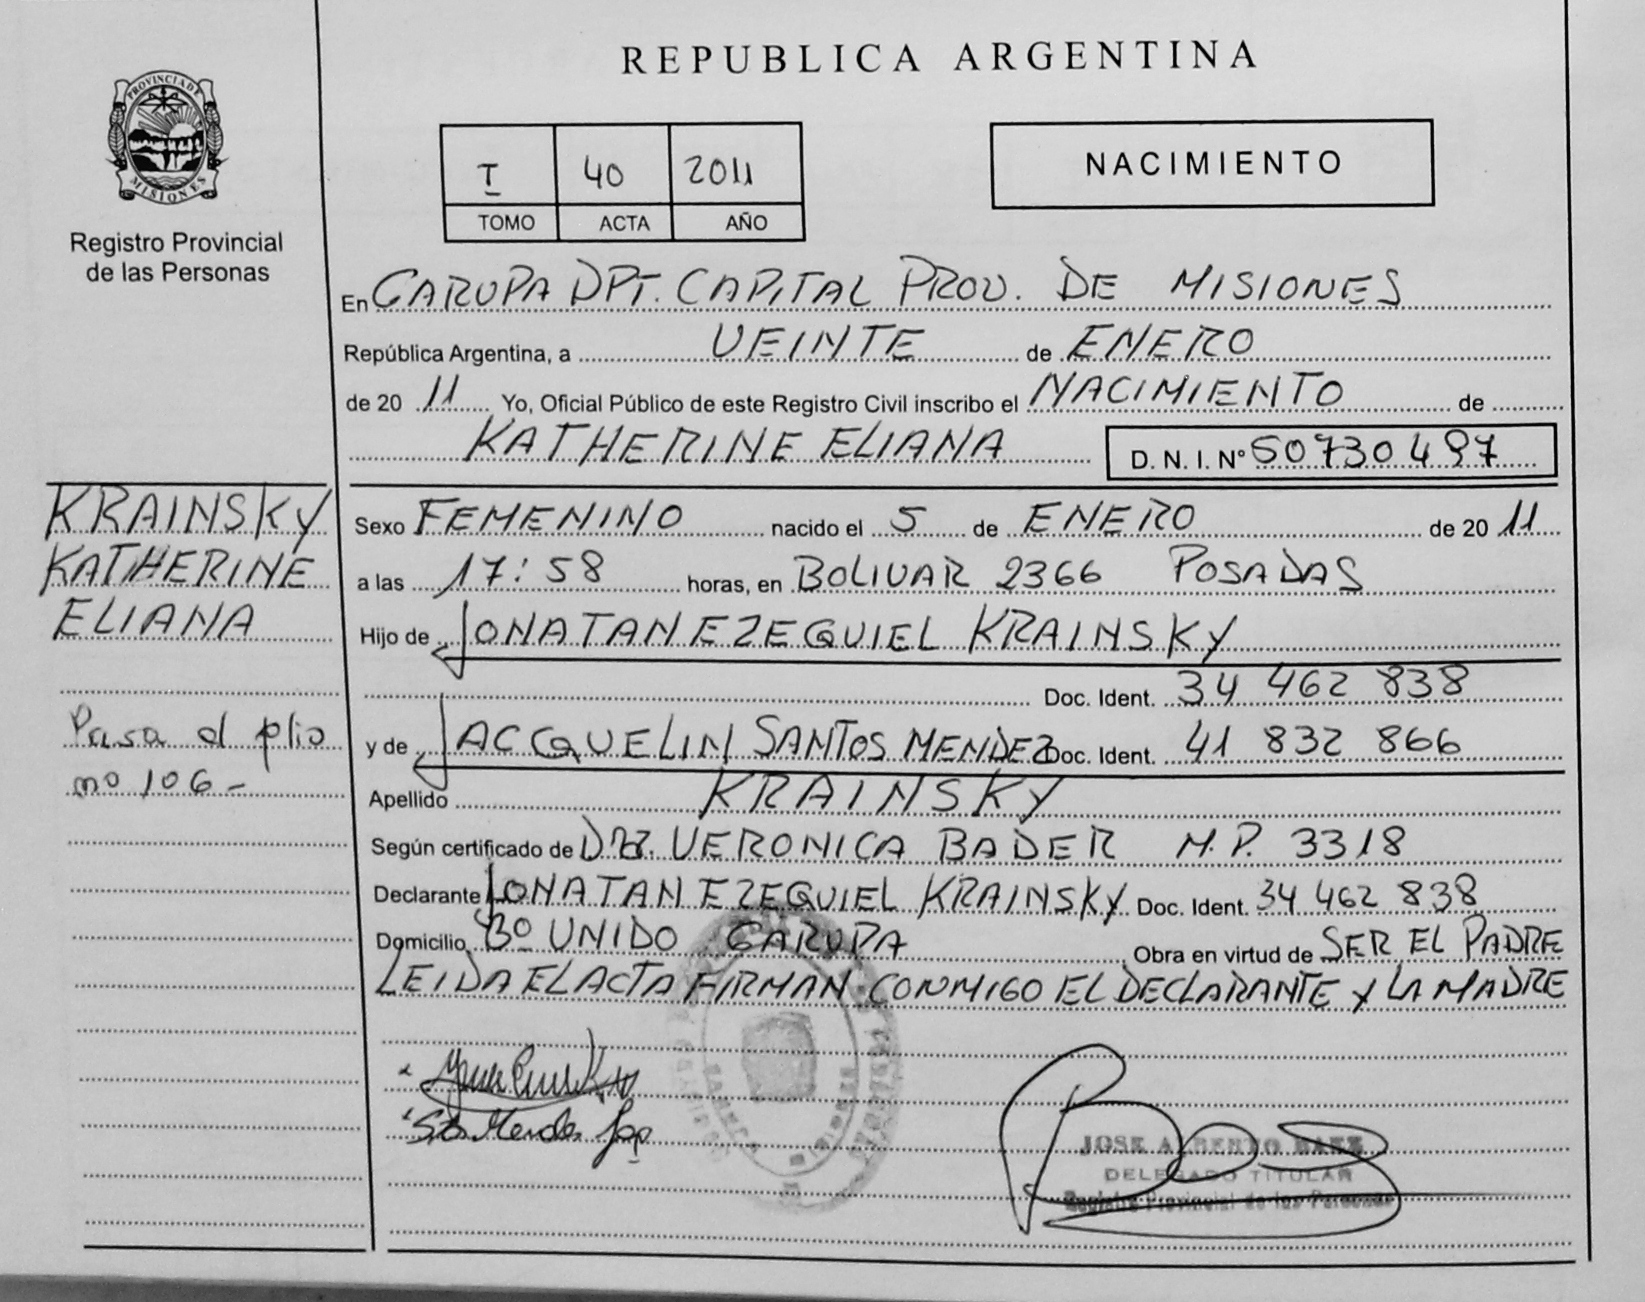 REPUBLICA ARGENTINA
PROVINCIA DE
MISIONES
Registro Provincial
de las Personas
I 40 2011
TOMO ACTA AÑO
NACIMIENTO
En GARUPA DPT. CAPITAL PROV. DE MISIONES
República Argentina, a VEINTE de ENERO
de 20 11 Yo, Oficial Público de este Registro Civil inscribo el NACIMIENTO de
KATHERINE ELIANA D. N. I. Nº 50730497
KRAINSKY
KATHERINE
ELIANA
Pasa al plio
nº 106-
Sexo FEMENINO nacido el 5 de ENERO de 20 11
a las 17:58 horas, en BOLIVAR 2366 POSADAS
Hijo de JONATAN EZEQUIEL KRAINSKY
Doc. Ident. 34 462 838
y de JACCQUELIN SANTOS MENDEZ Doc. Ident. 41 832 866
Apellido KRAINSKY
Según certificado de DRA. VERONICA BADER M.P. 3318
Declarante JONATAN EZEQUIEL KRAINSKY Doc. Ident. 34 462 838
Domicilio Bº UNIDO GARUPA Obra en virtud de SER EL PADRE
LEIDA EL ACTA FIRMAN CONMIGO EL DECLARANTE Y LA MADRE
JOSE ALBERTO BAEZ
DELEGADO TITULAR
Registro Provincial de las Personas